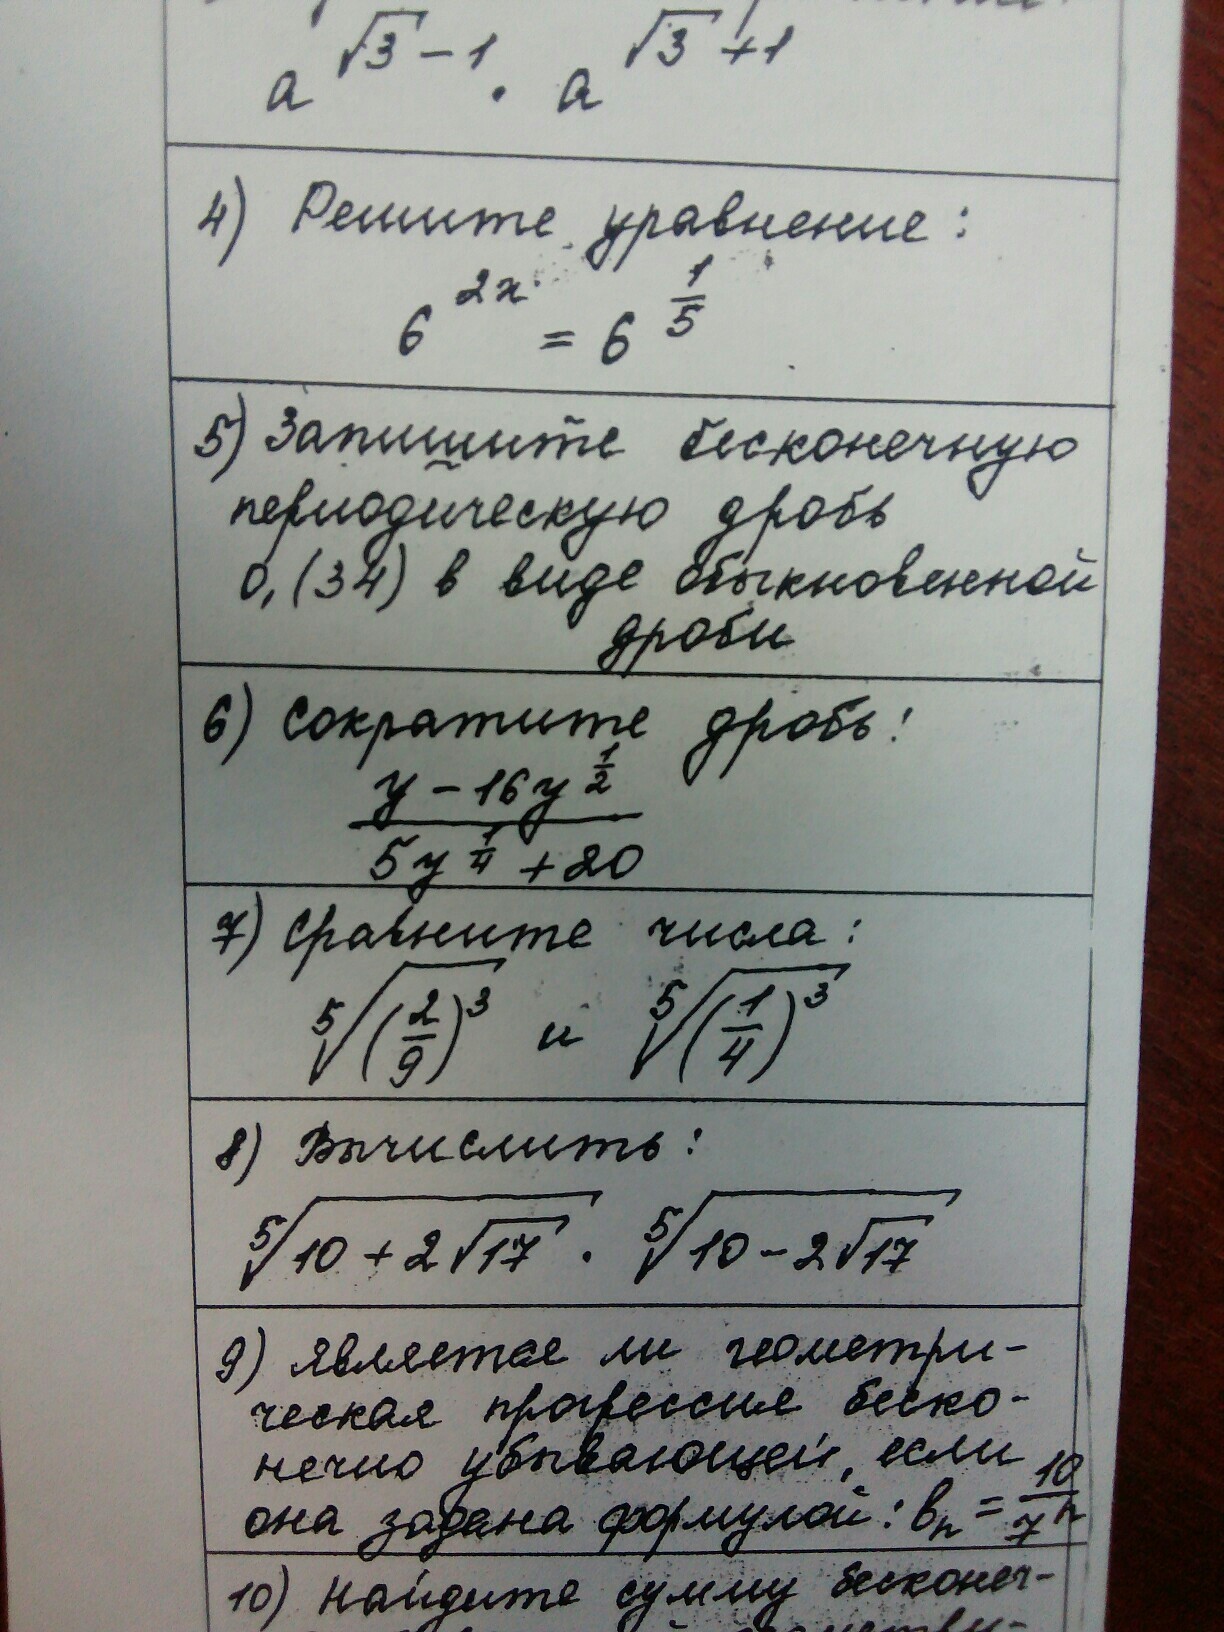 a^(√3 − 1) · a^(√3 + 1)
4) Решите уравнение:
6^(2x) = 6^(1/5)
5) Запишите бесконечную
периодическую дробь
0,(34) в виде обыкновенной
дроби
6) Сократите дробь:
(y − 16y^(1/2)) / (5y^(1/4) + 20)
7) Сравните числа:
⁵√((2/9)^3) и ⁵√((1/4)^3)
8) Вычислить:
⁵√(10 + 2√17) · ⁵√(10 − 2√17)
9) Является ли геометри-
ческая прогрессия беско-
нечно убывающей, если
она задана формулой: bn = 10/7^n
10) Найдите сумму бесконеч-